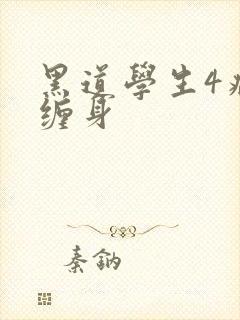 黑道學生4
缠身
秦鈉